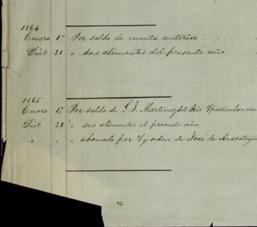 1864
Enero 1º Por saldo de cuenta anterior
Dicbre 31 " sus alimentos del presente año
1865
Enero 1º Por saldo de G. I. Martinez del Rio
Dicbre 31 " sus alimentos el presente año
" " " abonado por orden de José de Ansoategui